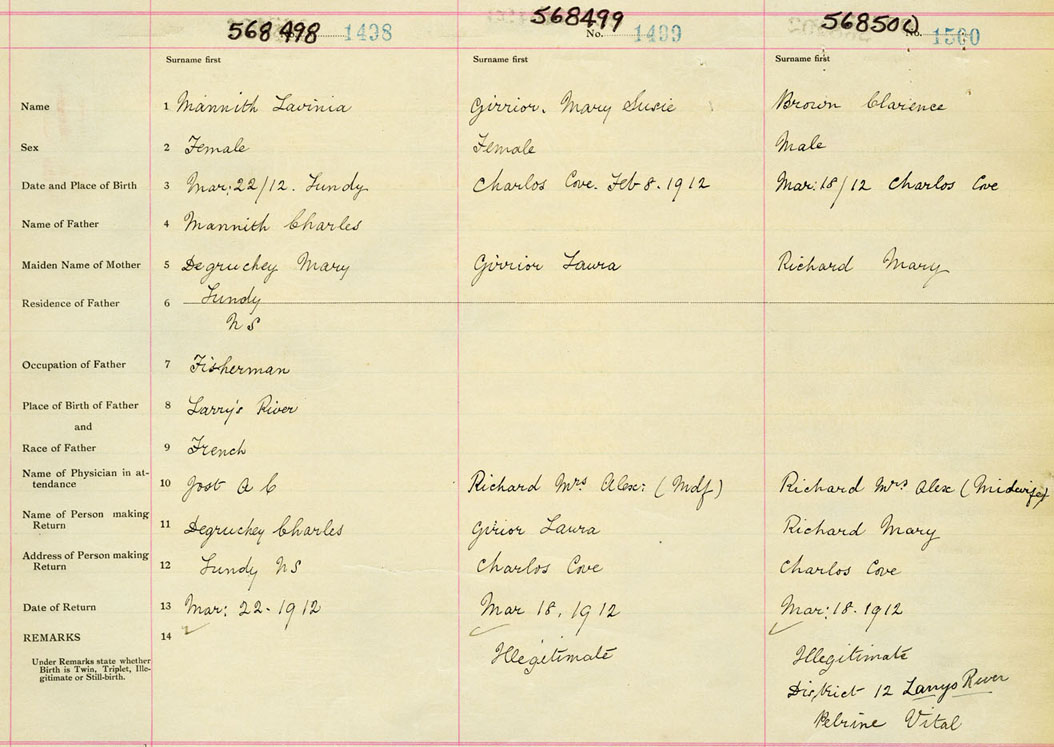 568498 No. 1498 568499 No. 1499 568500 No. 1500
Surname first Surname first Surname first
Name 1 Mannith Lavinia Girrior. Mary Susie Brown Clarence
Sex 2 Female Female Male
Date and Place of Birth 3 Mar: 22/12. Lundy Charlos Cove. Feb 8. 1912 Mar: 18/12 Charlos Cove
Name of Father 4 Mannith Charles
Maiden Name of Mother 5 Degruchey Mary Girrior Laura Richard Mary
Residence of Father 6 Lundy
N S
Occupation of Father 7 Fisherman
Place of Birth of Father 8 Larry's River
and
Race of Father 9 French
Name of Physician in at-
tendance 10 Jost A C Richard Mrs Alex: (Mdf) Richard Mrs Alex (Midwife)
Name of Person making
Return 11 Degruchey Charles Girior Laura Richard Mary
Address of Person making
Return 12 Lundy NS Charlos Cove Charlos Cove
Date of Return 13 Mar: 22-1912 Mar 18, 1912 Mar: 18-1912
REMARKS 14
Under Remarks state whether
Birth is Twin, Triplet, Ille-
gitimate or Still-birth.
Illegitimate Illegitimate
District 12 Larrys River
Pelrine Vital